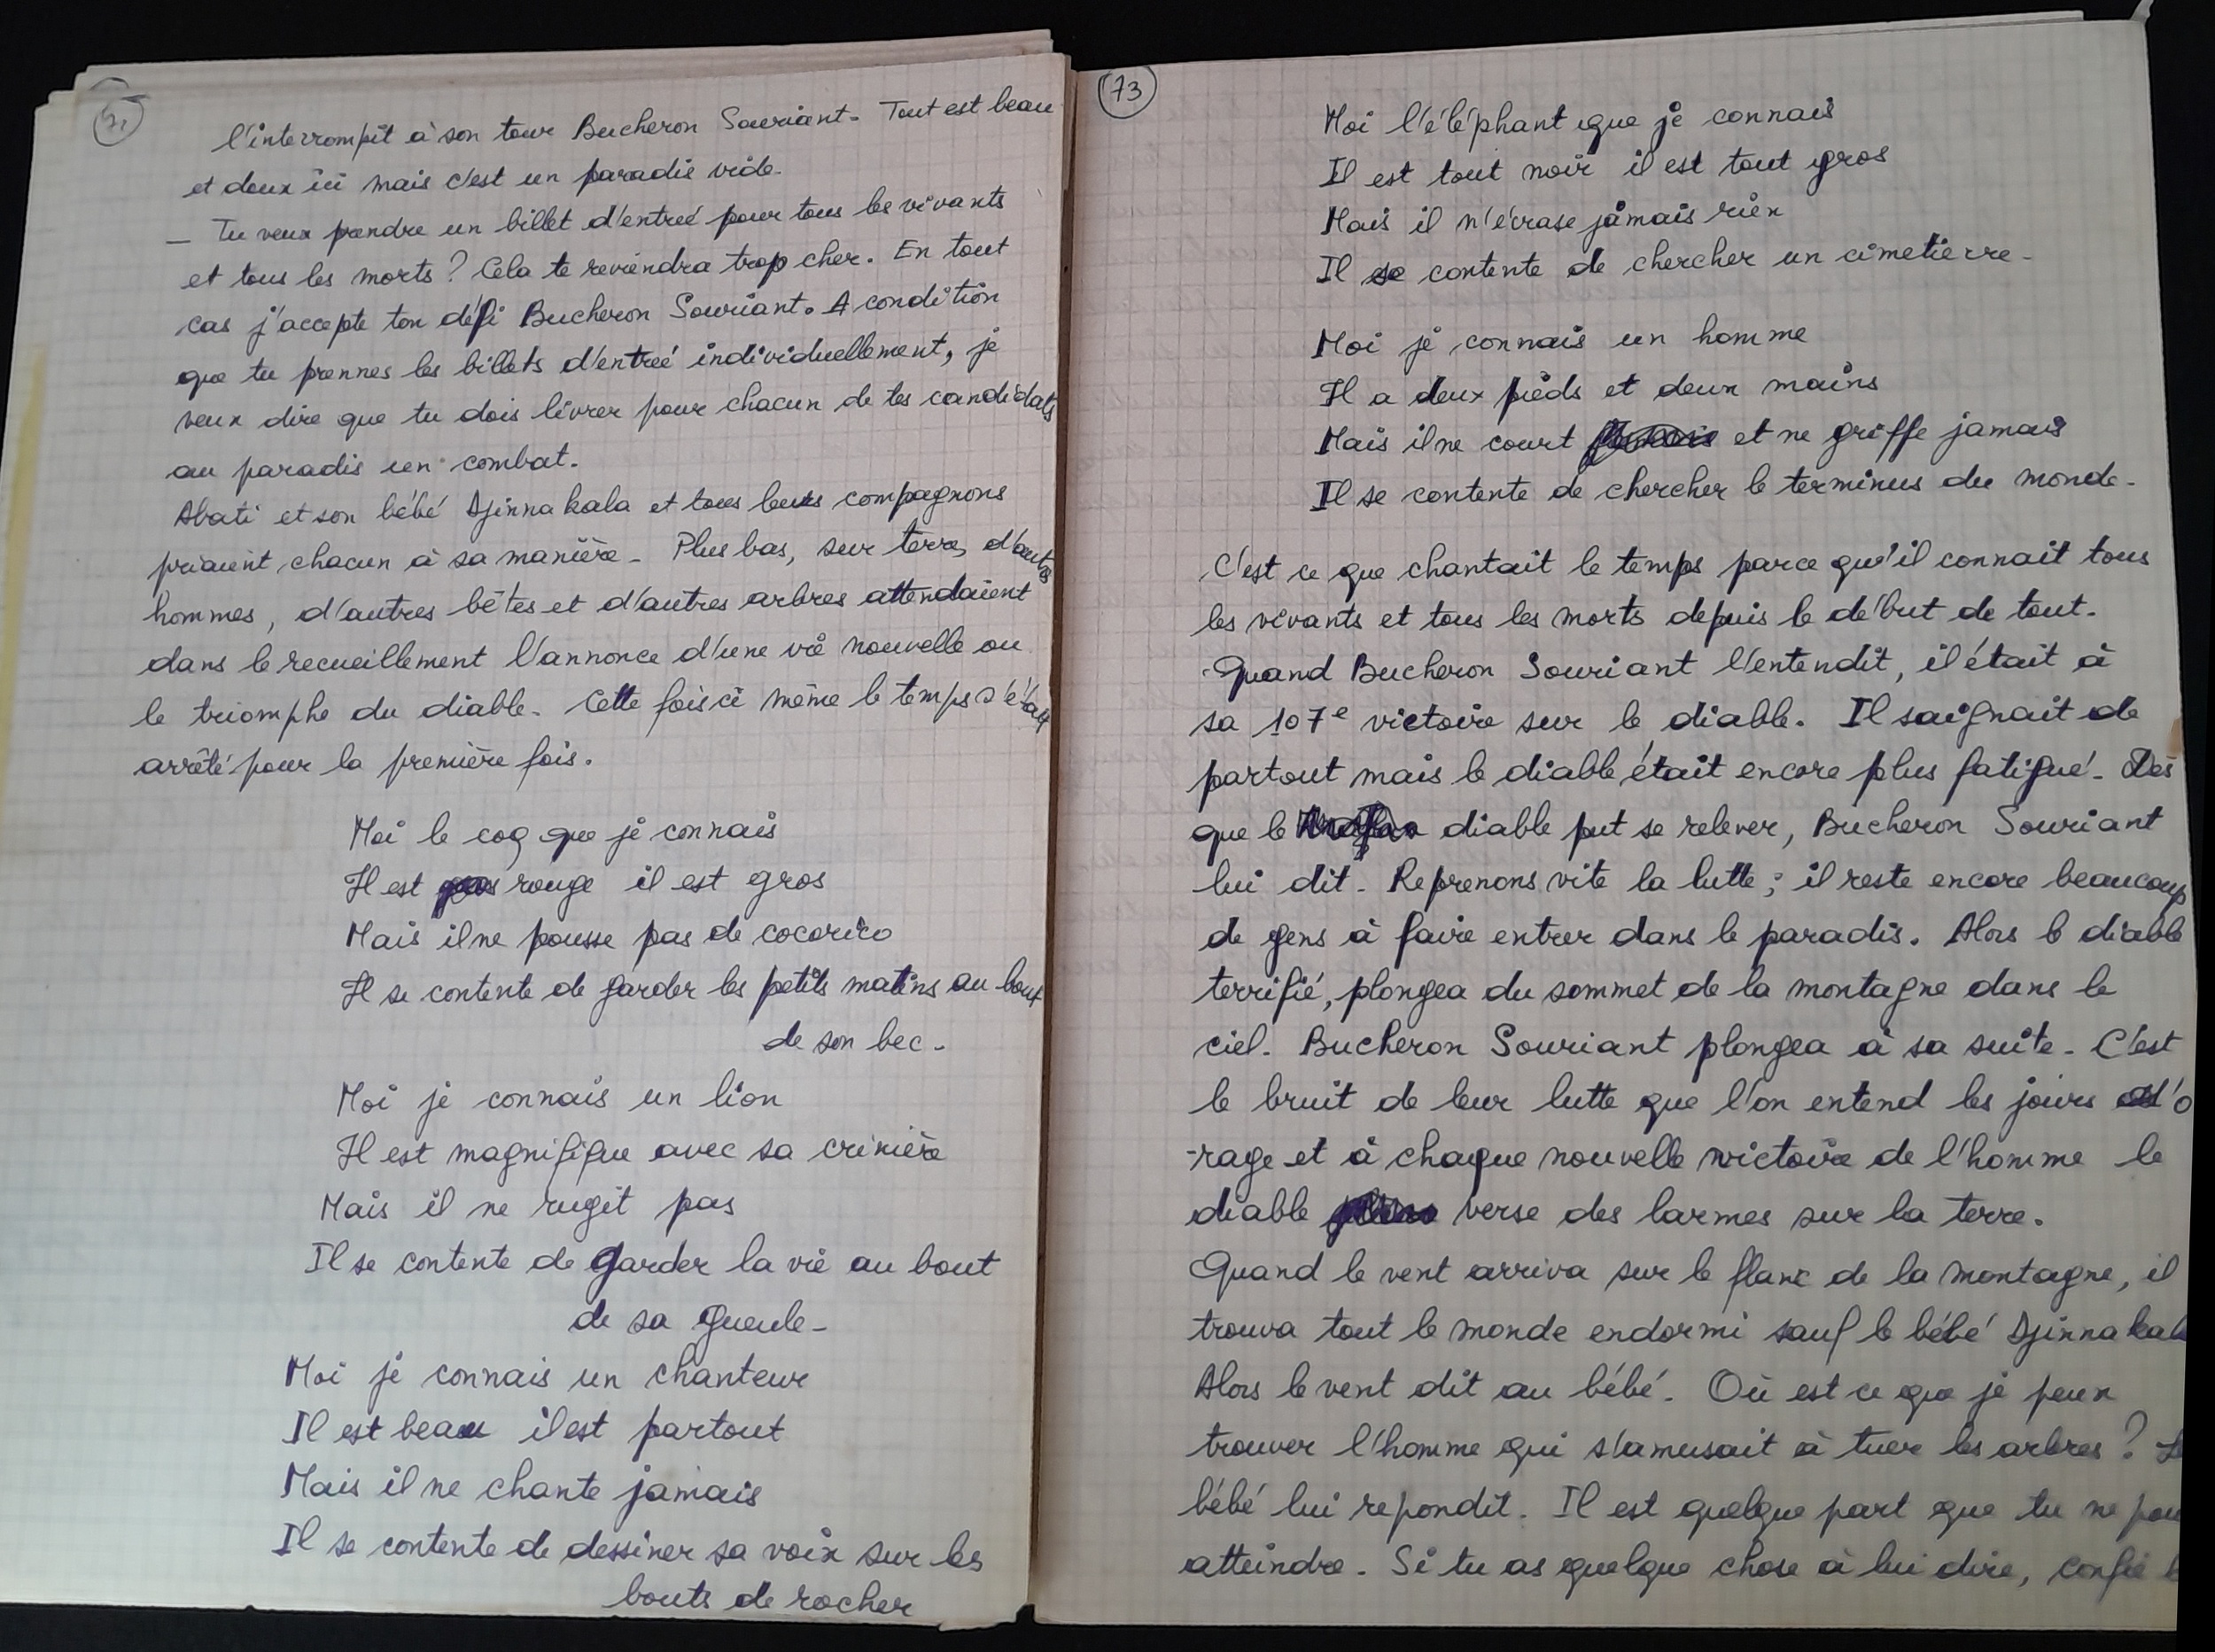 l'interrompit à son tour Bucheron Souriant. Tout est beau
et doux ici mais c'est un paradis vide.
— Tu veux prendre un billet d'entreé pour tous les vivants
et tous les morts ? Cela te reviendra trop cher. En tout
cas j'accepte ton défi Bucheron Souriant. A condition
que tu prennes les billets d'entreé individuellement, je
veux dire que tu dois livrer pour chacun de tes candidats
au paradis un combat.
Abati et son bébé Djinna kala et tous leurs compagnons
priaient chacun à sa manière. Plus bas, sur terre, d'autres
hommes, d'autres bêtes et d'autres arbres attendaient
dans le recueillement l'annonce d'une vie nouvelle ou
le triomphe du diable. Cette fois ci même le temps s'était
arrêté pour la première fois.
Moi le coq que je connais
Il est rouge il est gros
Mais il ne pousse pas de cocorico
Il se contente de garder les petits matins au bout
de son bec.
Moi je connais un lion
Il est magnifique avec sa crinière
Mais il ne rugit pas
Il se contente de garder la vie au bout
de sa gueule.
Moi je connais un chanteur
Il est beau il est partout
Mais il ne chante jamais
Il se contente de dessiner sa voix sur les
bouts de rocher
73
Moi l'éléphant que je connais
Il est tout noir il est tout gros
Mais il n'écrase jamais rien
Il se contente de chercher un cimetierre.
Moi je connais un homme
Il a deux pieds et deux mains
Mais il ne court et ne griffe jamais
Il se contente de chercher le terminus du monde.
C'est ce que chantait le temps parce qu'il connait tous
les vivants et tous les morts depuis le début de tout.
Quand Bucheron Souriant l'entendit, il était à
sa 107e victoire sur le diable. Il saignait de
partout mais le diable était encore plus fatigué. Dès
que le diable put se relever, Bucheron Souriant
lui dit. Reprenons vite la lutte ; il reste encore beaucoup
de gens à faire entrer dans le paradis. Alors le diable
terrifié, plongea du sommet de la montagne dans le
ciel. Bucheron Souriant plongea à sa suite. C'est
le bruit de leur lutte que l'on entend les jours d'o
-rage et à chaque nouvelle victoire de l'homme le
diable verse des larmes sur la terre.
Quand le vent arriva sur le flanc de la montagne, il
trouva tout le monde endormi sauf le bébé Djinna kala
Alors le vent dit au bébé. Où est ce que je peux
trouver l'homme qui s'amusait à tuer les arbres ? Le
bébé lui repondit. Il est quelque part que tu ne
atteindre. Si tu as quelque chose à lui dire, confie